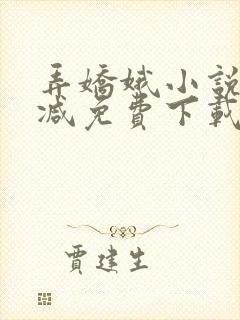 弄嬌娥小說
減免費下載
賈建生